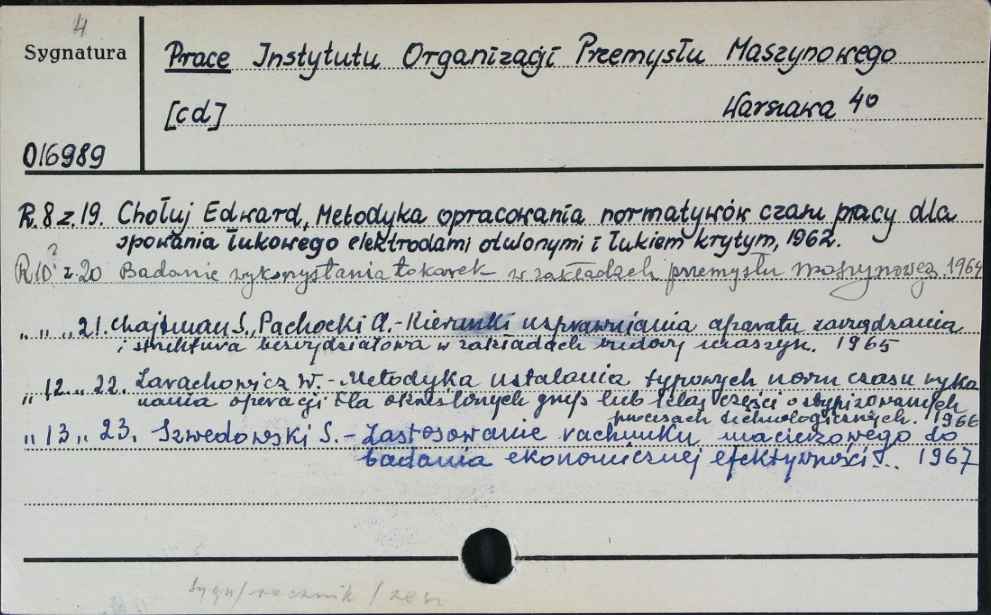 4
Sygnatura
Prace Instytutu Organizacji Przemysłu Maszynowego
[cd] Warszawa 40
016989
R. 8 z. 19. Chołuj Edward, Metodyka opracowania normatywów czasu pracy dla
spowania łukowego elektrodami otulonymi i łukiem krytym, 1962.
R10? z. 20 Badanie wykorzystania tokarek w zakładach przemysłu maszynoweg. 1964
" " " 21. Chajtman S., Pachocki A. - Kierunki usprawniania aparatu zarządzania
i struktura bezwydziałowa w zakładach budowy maszyn. 1965
" 12 " 22. Zarachowicz W. - Metodyka ustalania typowych norm czasu wyko
nania operacji dla określonych grup lub części o stypizowanych
procesach technologicznych. 1966
" 13 " 23. Szwedowski S. - Zastosowanie rachunku macierzowego do
badania ekonomicznej efektywności. 1967
Sygn/rocznik/zesz